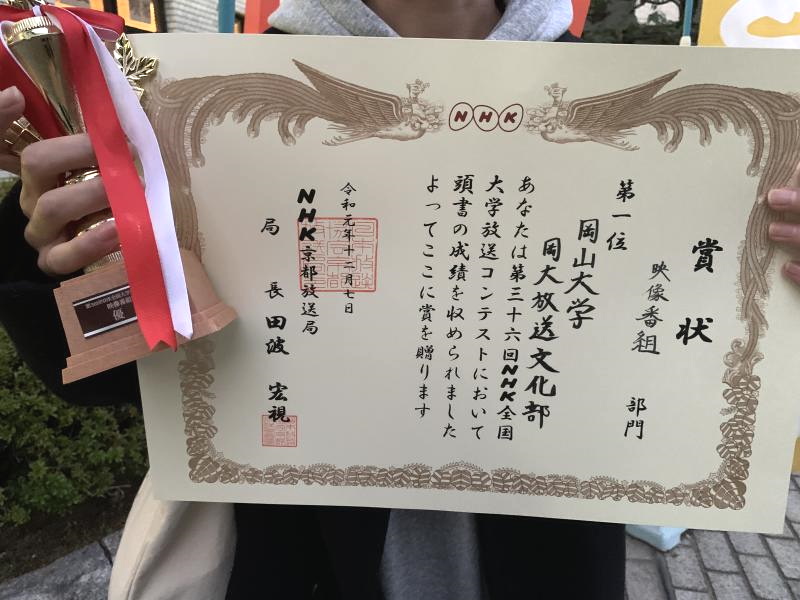 NHK
賞状
映像番組 部門
第一位
岡山大学
岡大放送文化部
あなたは第三十六回NHK全国
大学放送コンテストにおいて
頭書の成績を収められました
よってここに賞を贈ります
令和元年十二月七日
NHK京都放送局
局長 田波 宏視
優